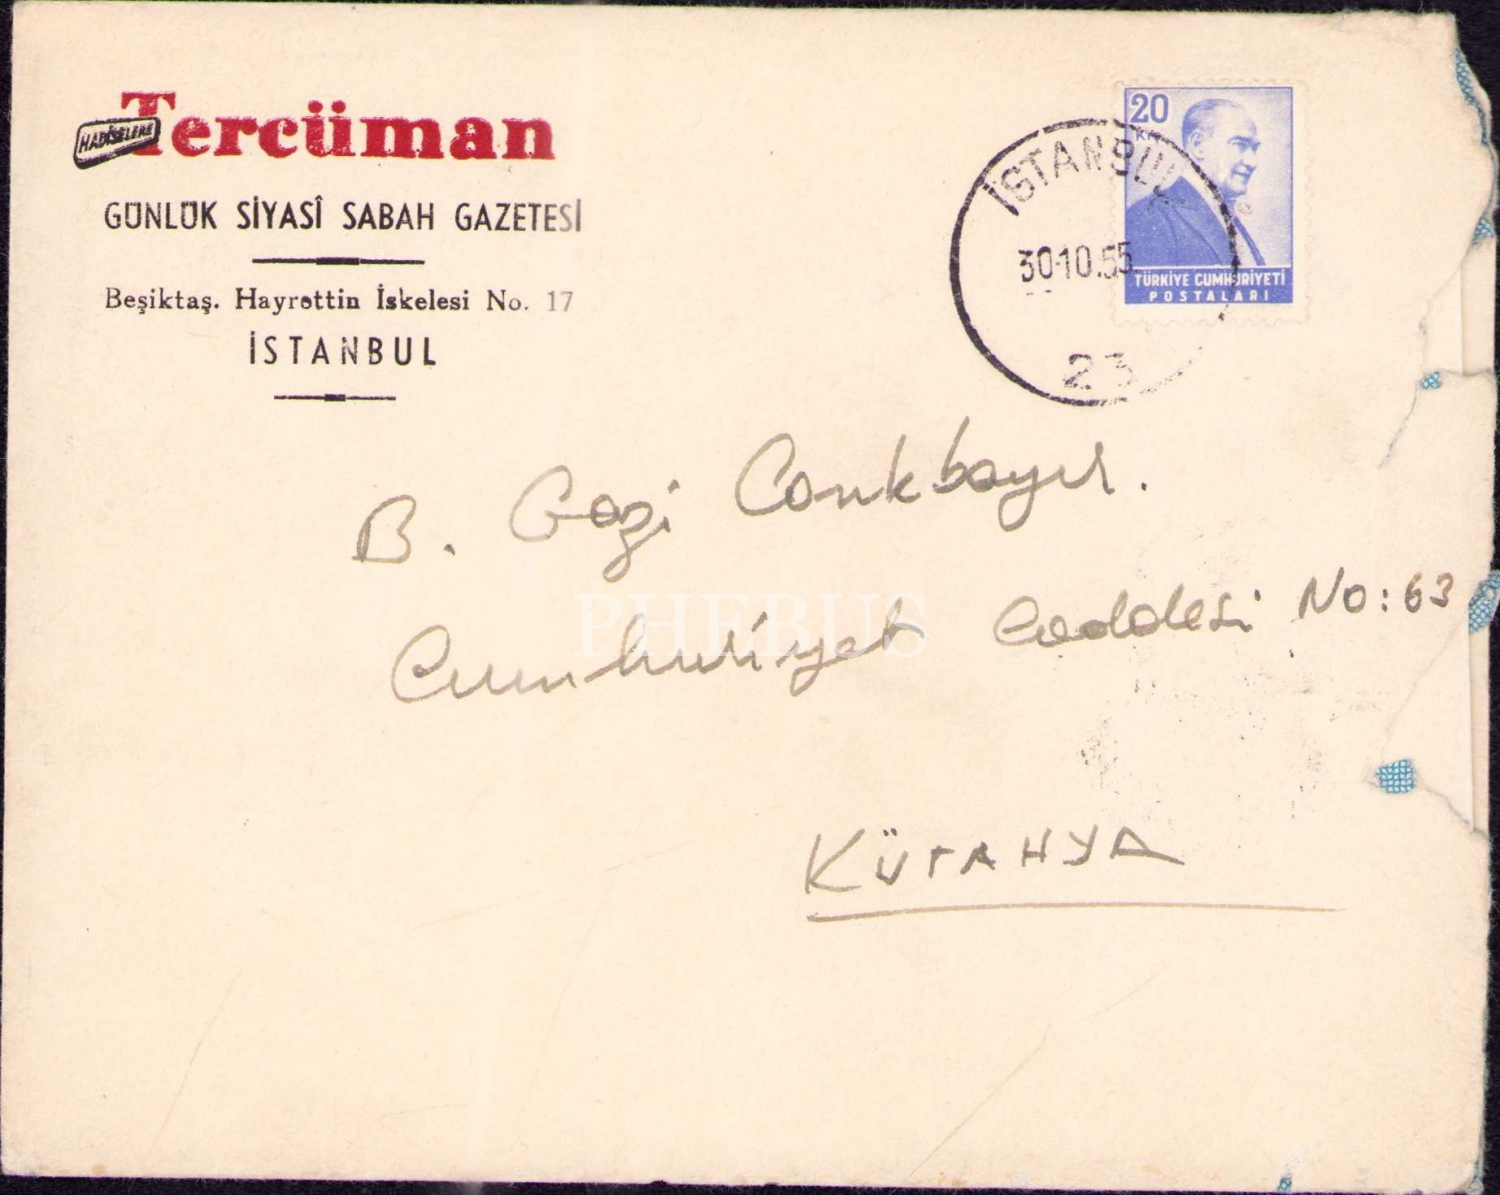 HADİSELERE
Tercüman
GÜNLÜK SİYASÎ SABAH GAZETESİ
Beşiktaş. Hayrettin İskelesi No. 17
İSTANBUL
20
Kr
TÜRKİYE CUMHURİYETİ
POSTALARI
İSTANBUL
30.10.55
23
B. Gazi Conkbayır.
Cumhuriyet Caddesi No: 63
KÜTAHYA
PHEBUS